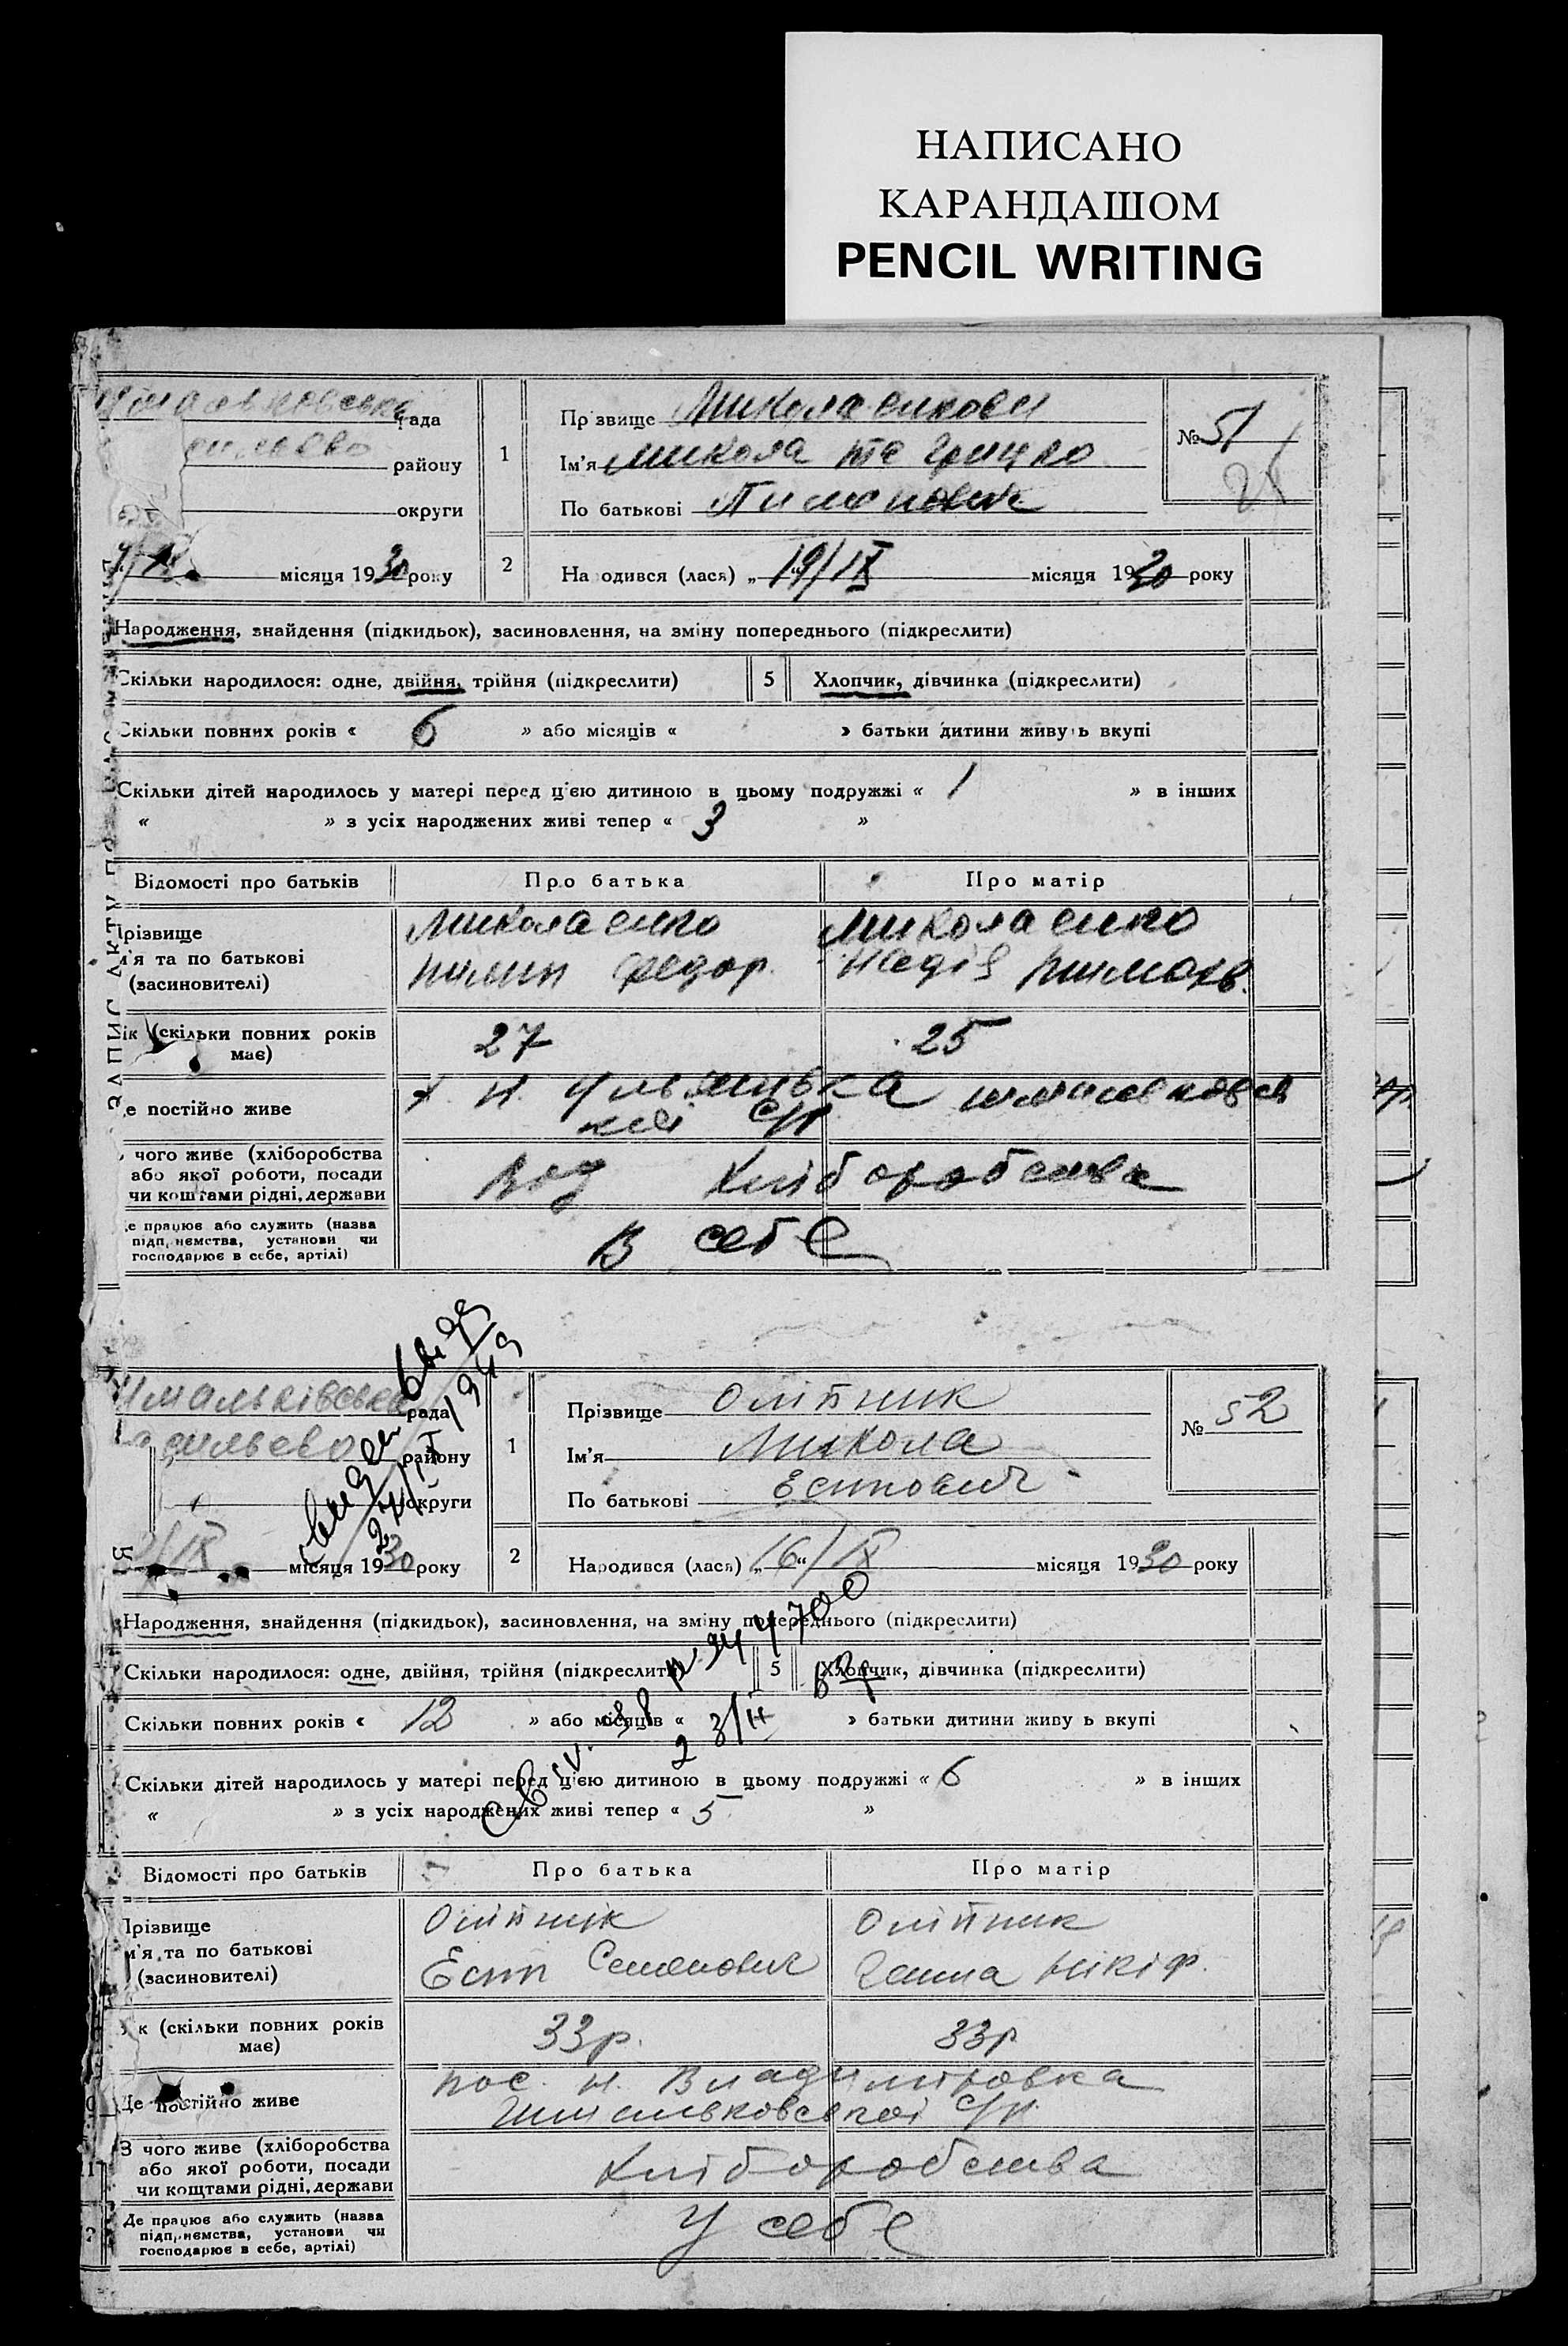 НАПИСАНО
КАРАНДАШОМ
PENCIL WRITING
рада
району
округи
місяця 1930 року
1
Прізвище Миколаенкови
Ім'я Микола та Грицко
По батькові Пимонович
№ 51
2
Народився (лася) „19/IX місяця 1930 року
Народження, знайдення (підкидьок), засиновлення, на зміну попереднього (підкреслити)
Скільки народилося: одне, двійня, трійня (підкреслити) 5 Хлопчик, дівчинка (підкреслити)
Скільки повних років « 6 » або місяців « » батьки дитини живуть вкупі
Скільки дітей народилось у матері перед цією дитиною в цьому подружжі « 1 » в інших
« » з усіх народжених живі тепер « 3 »
Відомості про батьків Про батька Про матір
Прізвище Миколаенко Миколаенко
м'я та по батькові Федор.
(засновителі)
ік (скільки повних років має) 27 25
е постійно живе х. Н.
кої С/р
чого живе (хліборобства
або якої роботи, посади Від Хліборобства
чи коштами рідні, держави
е працює або служить (назва
підприємства, установи чи В себе
господарює в себе, артілі)
рада
району
округи
/IX місяця 1930 року
1949
1
Прізвище Олійник
Ім'я Микола
По батькові Есипович
№ 52
2
Народився (лася) „16“/IX місяця 1930 року
Народження, знайдення (підкидьок), засиновлення, на зміну попереднього (підкреслити)
Скільки народилося: одне, двійня, трійня (підкреслити) 5 Хлопчик, дівчинка (підкреслити)
Скільки повних років « 12 » або місяців « » батьки дитини живуть вкупі
Скільки дітей народилось у матері перед цією дитиною в цьому подружжі « 6 » в інших
« » з усіх народжених живі тепер « 5 »
Відомості про батьків Про батька Про матір
Прізвище Олійник Олійник
м'я та по батькові Есип Семенович Ганна Нікіф.
(засиновителі)
к (скільки повних років має) 33р. 33р
Де постійно живе пос. Н. Владимировка
С/р.
З чого живе (хліборобства
або якої роботи, посади Хліборобства
чи коштами рідні, держави
Де працює або служить (назва
підприємства, установи чи У себе
господарює в себе, артілі)